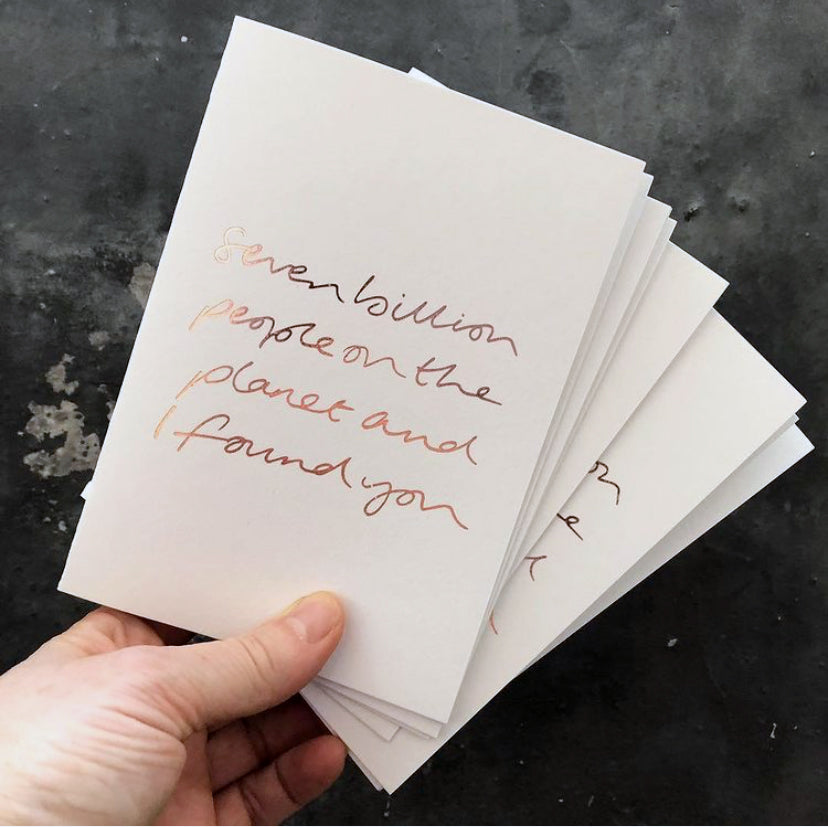 seven billion
people on the
planet and
I found you
on
e